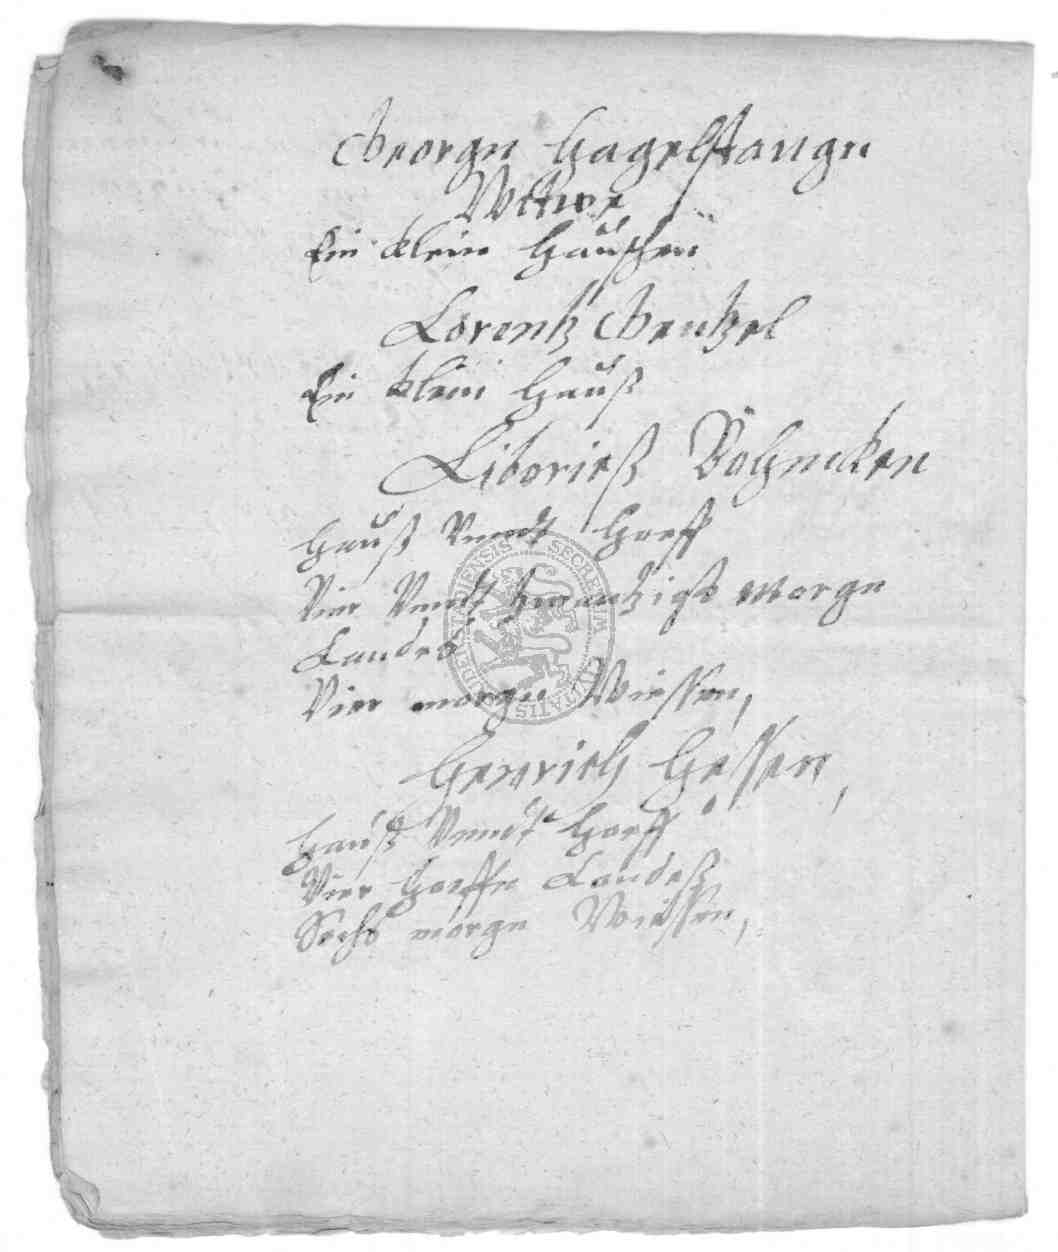 Georgn Hagelstangn
Witwe
Ein klein Häuschen
Lorentz Wentzel
Ein klein Hauß
Liborieß
Hauß Vnndt Hoeff
Vier Vnndt zwantzigh morgn
Landeß
Vier morgn Wiessen,
Henrich Hessen,
Hauß Vnndt Hoeff
Vier Hoeffe Landeß
Sechs morgn Wiessen,
SECRETUM CIVITATIS